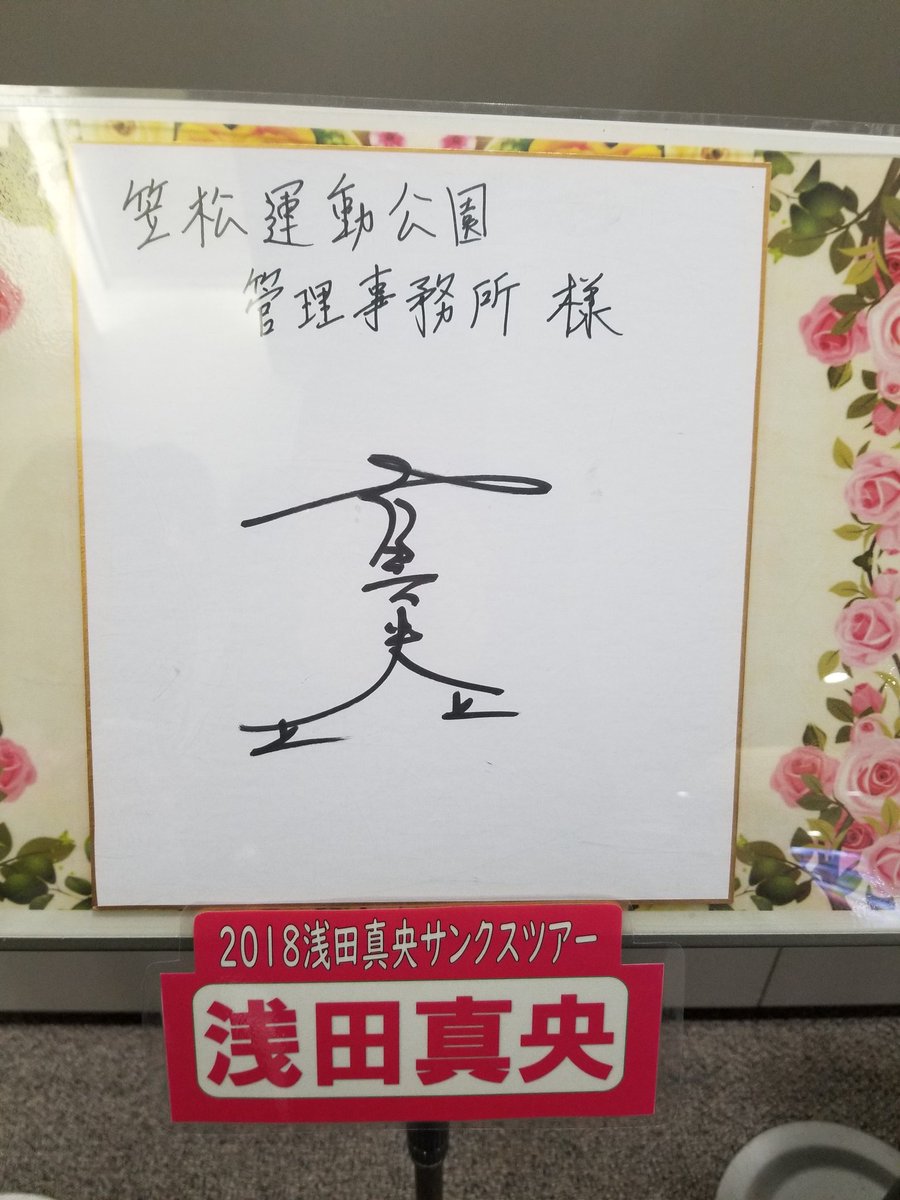 笠松運動公園
管理事務所 様
真央
2018浅田真央サンクスツアー
浅田真央